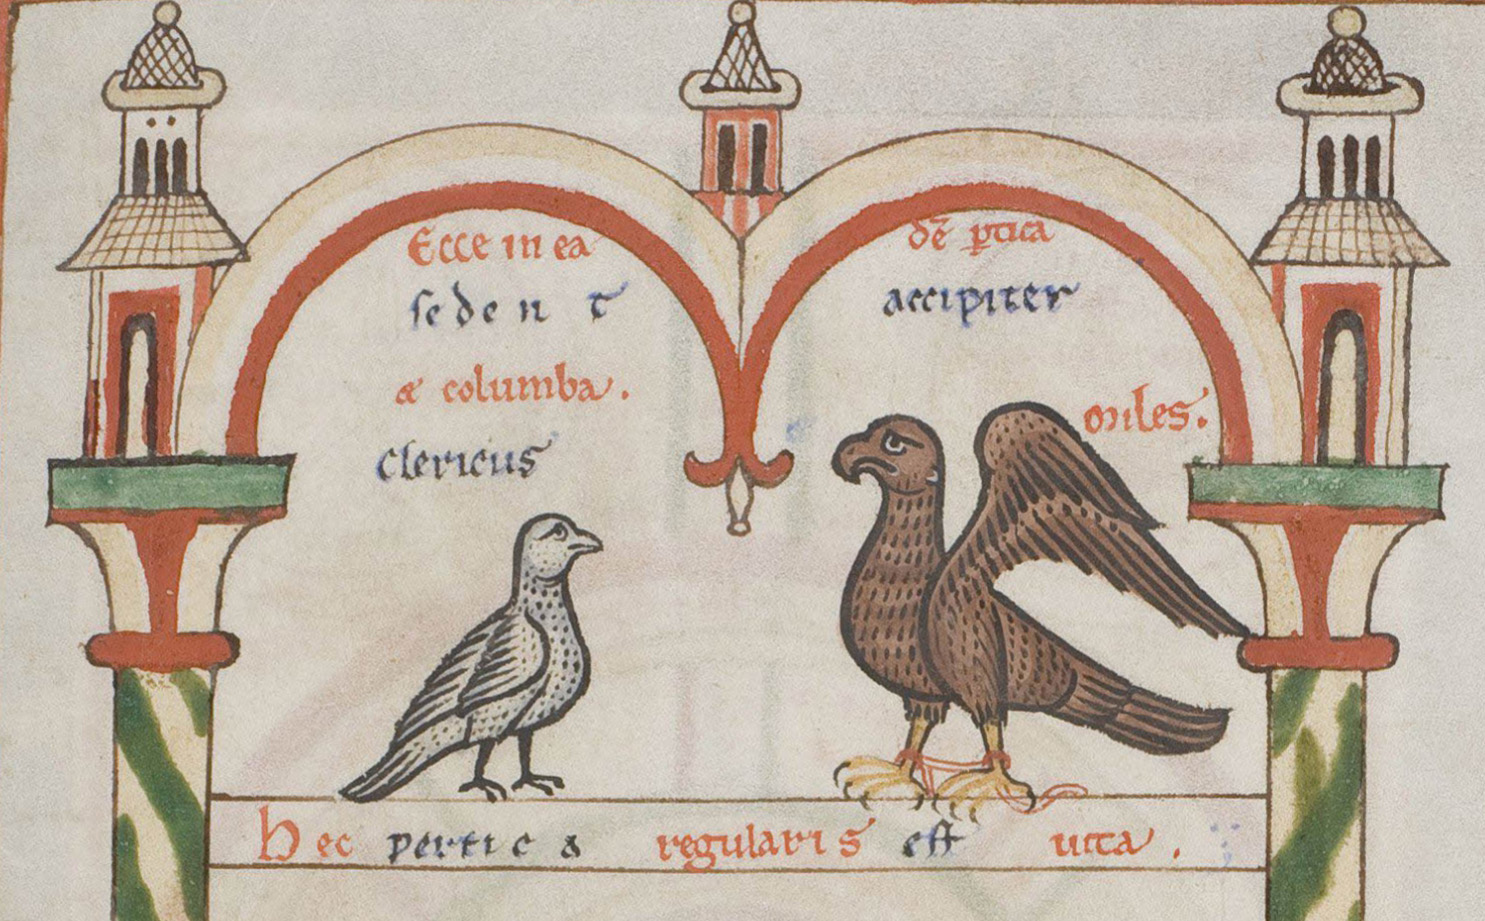 Ecce in ea
dē ꝑtica
sedent
accipiter
æ columba.
miles.
clericus
Hec pertica regularis est uita.